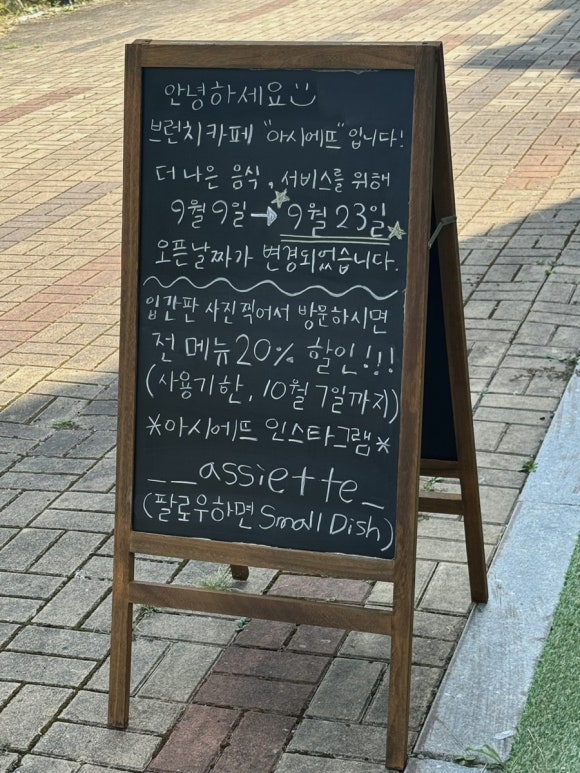 안녕하세요
브런치카페 "아시에뜨"입니다!
더 나은 음식, 서비스를 위해
9월 9일 → 9월 23일
오픈날짜가 변경되었습니다.
입간판 사진찍어서 방문하시면
전 메뉴 20% 할인!!!
(사용기한, 10월 7일까지)
*아시에뜨 인스타그램*
__assiette_
(팔로우하면 Small Dish)